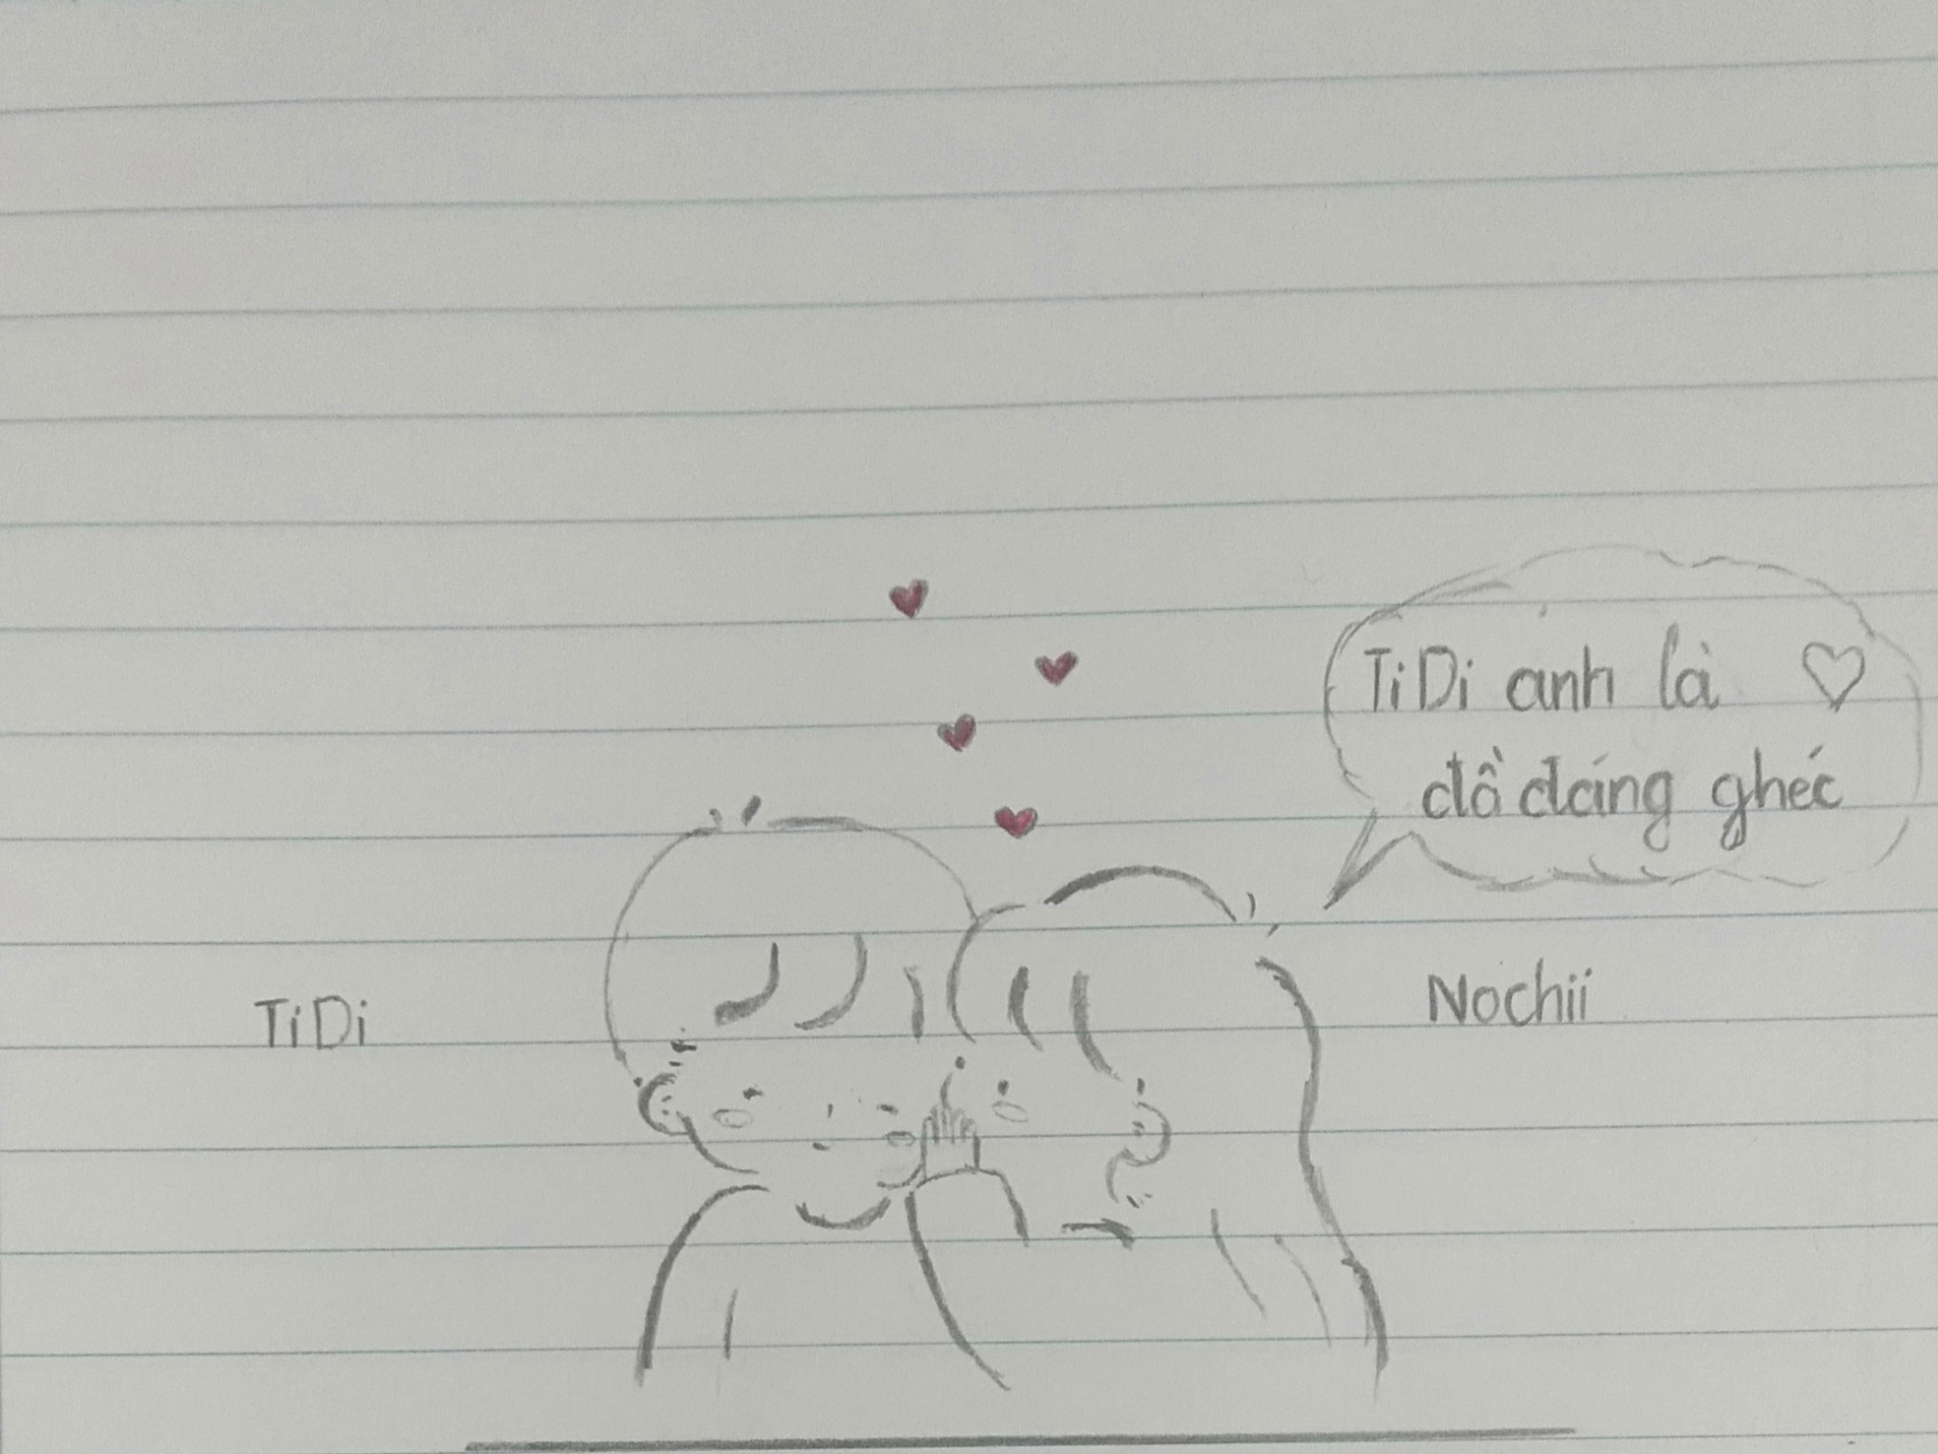 TiDi anh là ♡
đồ đáng ghéc
TiDi
Nochii